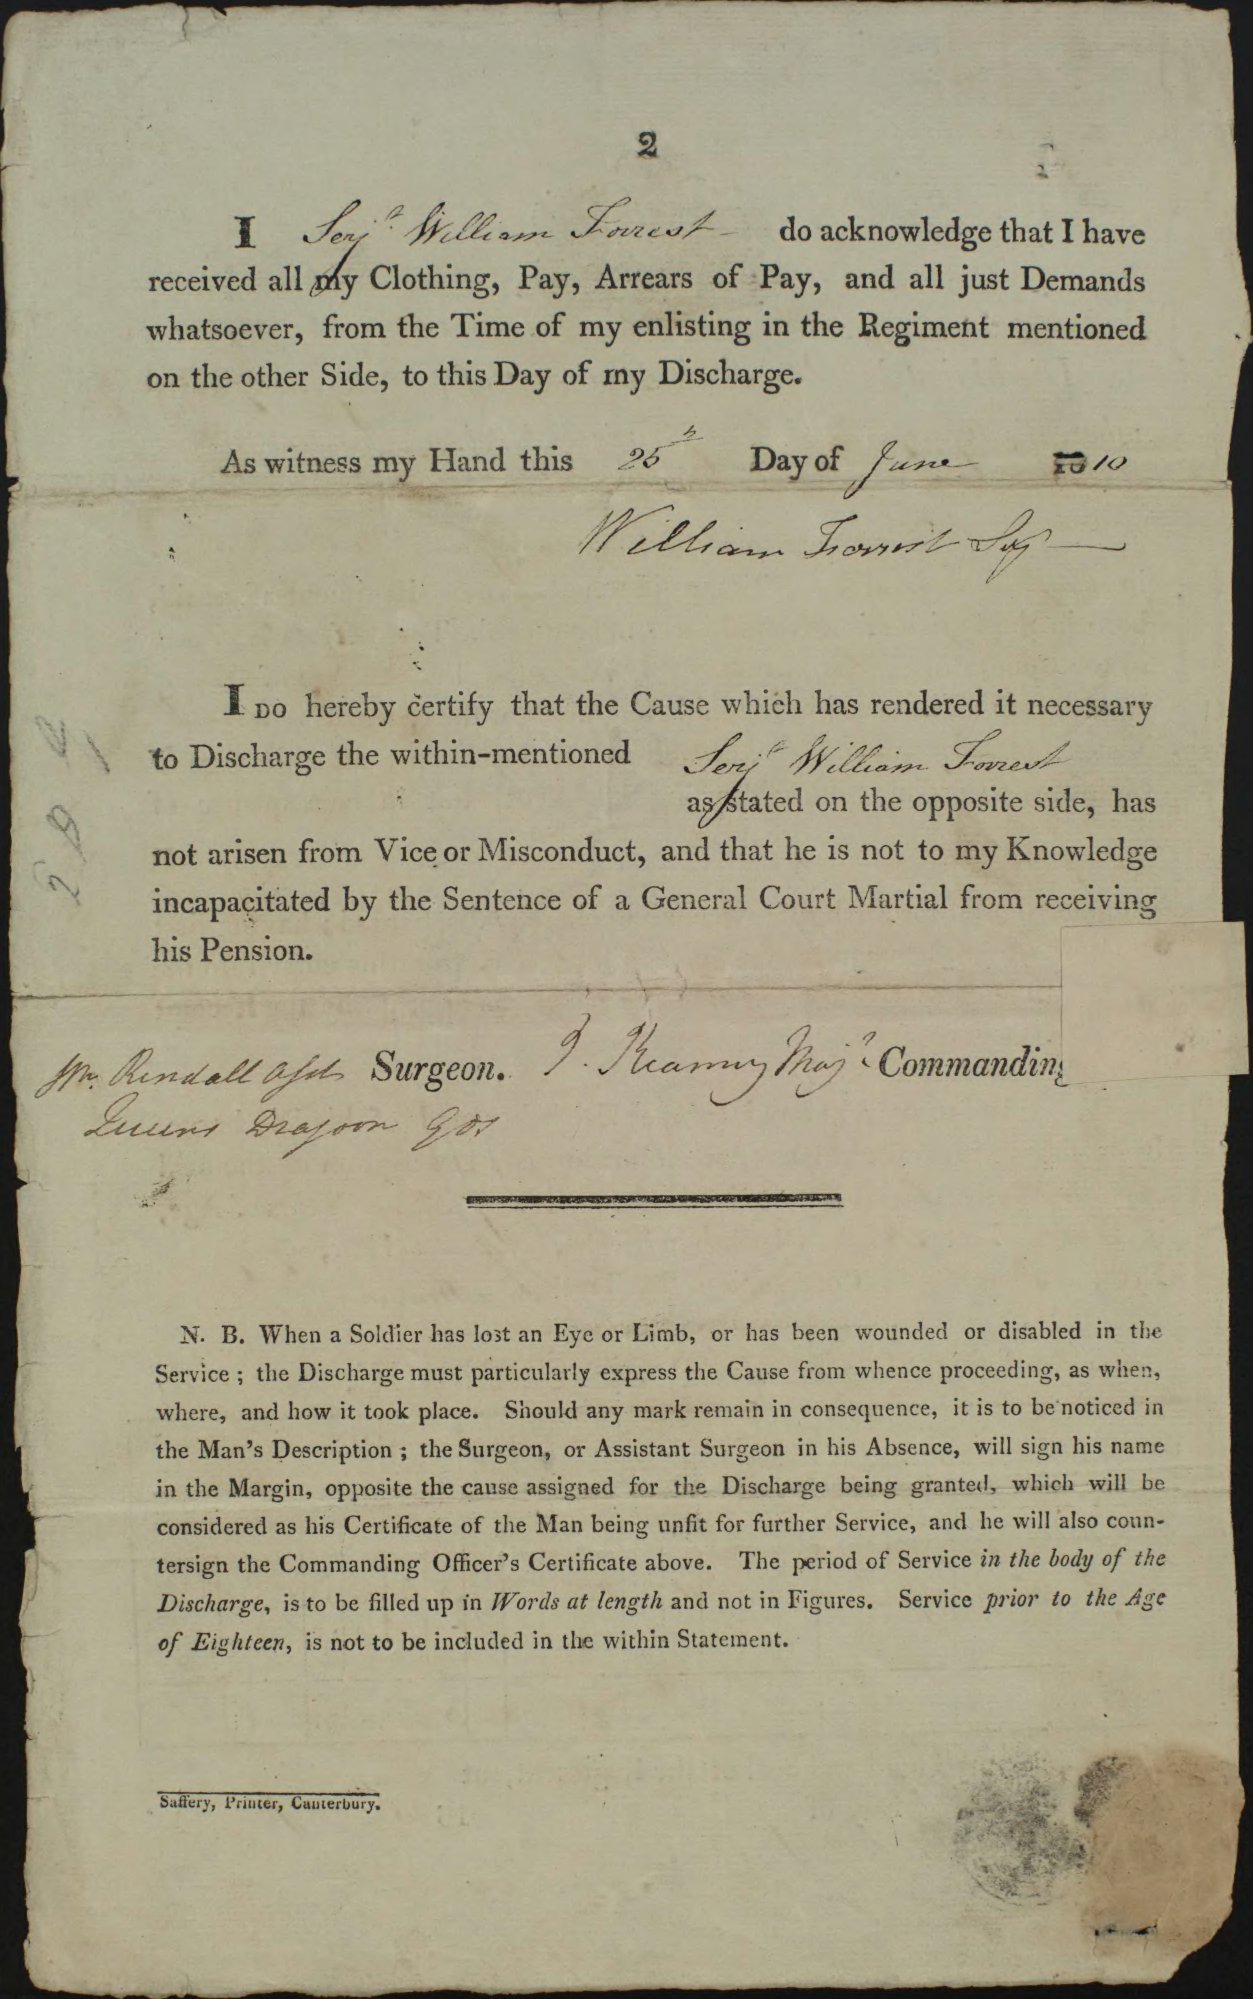 2
I Serjt William Forrest do acknowledge that I have
received all my Clothing, Pay, Arrears of Pay, and all just Demands
whatsoever, from the Time of my enlisting in the Regiment mentioned
on the other Side, to this Day of my Discharge.
As witness my Hand this 25th Day of June 1810
William Forrest Serjt
I DO hereby certify that the Cause which has rendered it necessary
to Discharge the within-mentioned Serjt William Forrest
as stated on the opposite side, has
not arisen from Vice or Misconduct, and that he is not to my Knowledge
incapacitated by the Sentence of a General Court Martial from receiving
his Pension.
Wm. Rendall Asst Surgeon. J. Kearney Majr Commanding
Queens Dragoon Gds
N. B. When a Soldier has lost an Eye or Limb, or has been wounded or disabled in the
Service ; the Discharge must particularly express the Cause from whence proceeding, as when,
where, and how it took place. Should any mark remain in consequence, it is to be noticed in
the Man's Description ; the Surgeon, or Assistant Surgeon in his Absence, will sign his name
in the Margin, opposite the cause assigned for the Discharge being granted, which will be
considered as his Certificate of the Man being unfit for further Service, and he will also coun-
tersign the Commanding Officer's Certificate above. The period of Service in the body of the
Discharge, is to be filled up in Words at length and not in Figures. Service prior to the Age
of Eighteen, is not to be included in the within Statement.
Saffery, Printer, Canterbury.